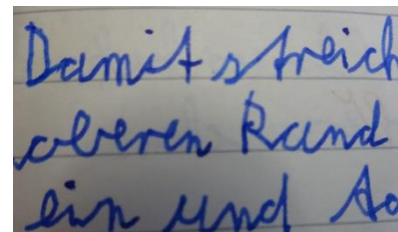 Damit streich
oberen Rand
ein und